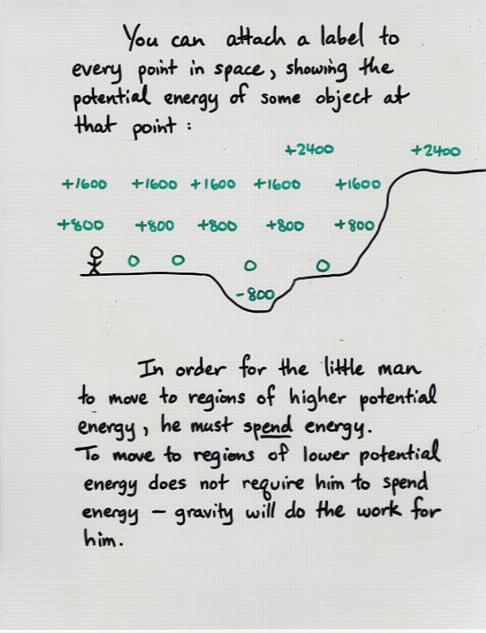 You can attach a label to
every point in space, showing the
potential energy of some object at
that point :
+2400 +2400
+1600 +1600 +1600 +1600 +1600
+800 +800 +800 +800 +800
0 0 0 0
-800
In order for the little man
to move to regions of higher potential
energy, he must spend energy.
To move to regions of lower potential
energy does not require him to spend
energy – gravity will do the work for
him.